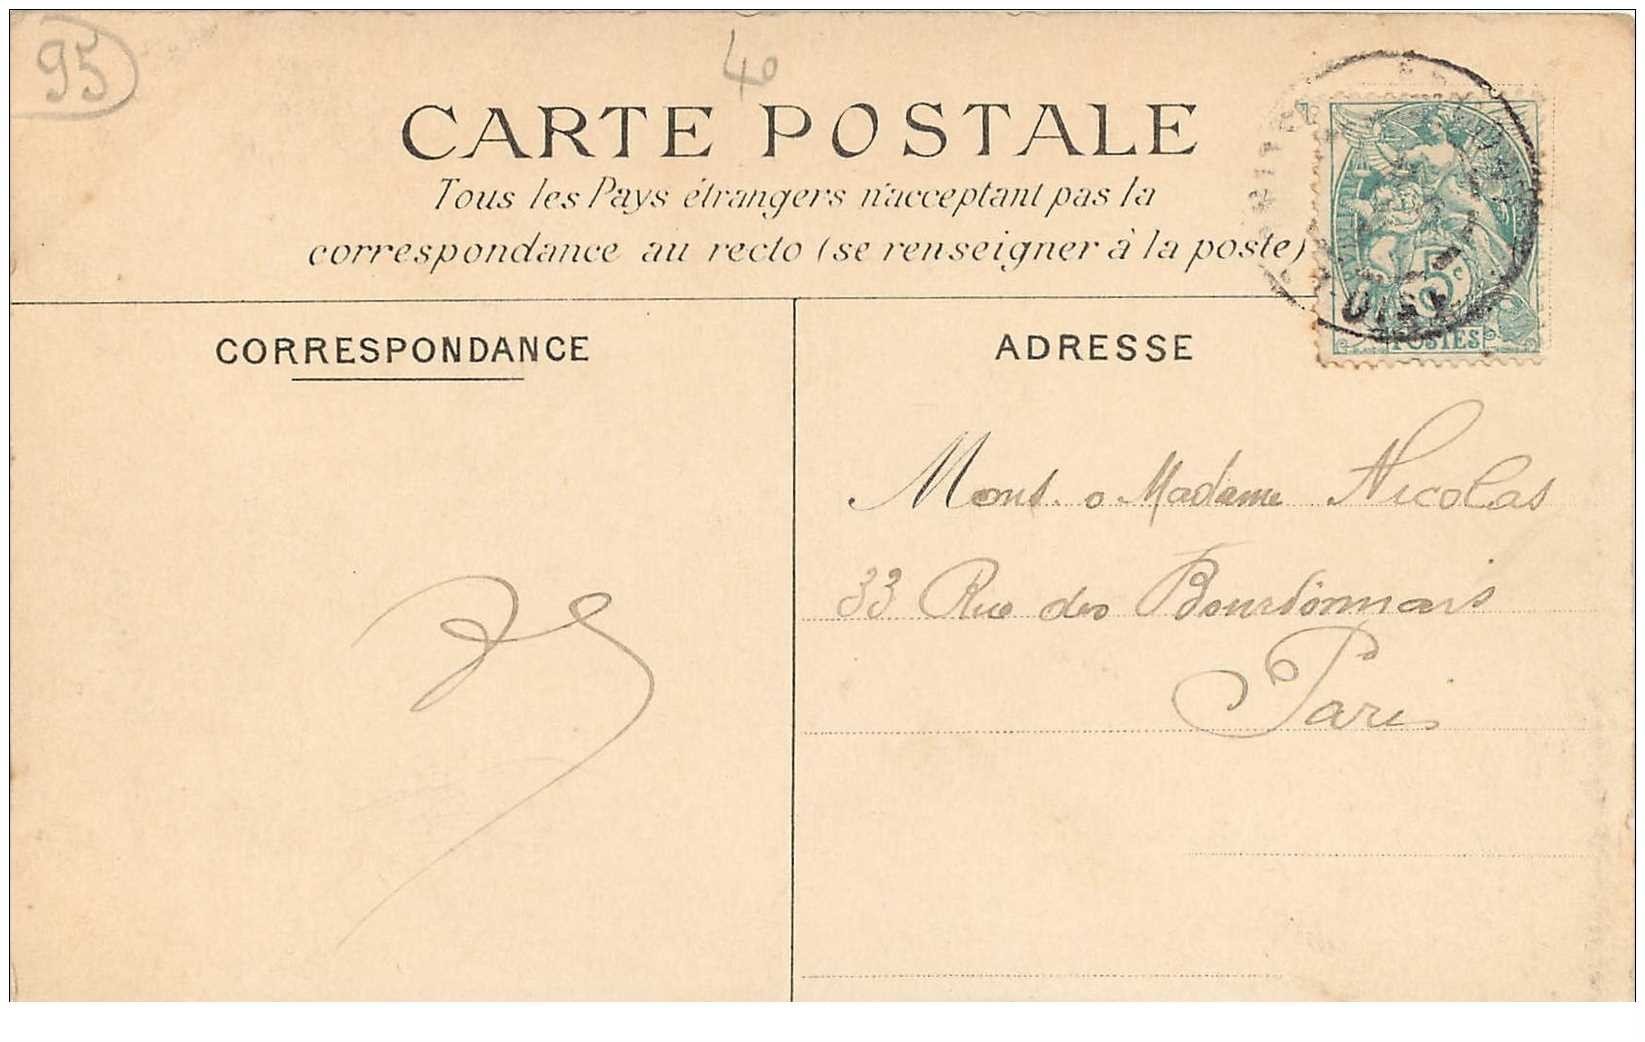 95
40
CARTE POSTALE
Tous les Pays étrangers n'acceptant pas la
correspondance au recto (se renseigner à la poste)
CORRESPONDANCE
ADRESSE
5c
POSTES
OISE
Mons. o Madame Nicolas
33 Rue des Bourdonnais
Paris